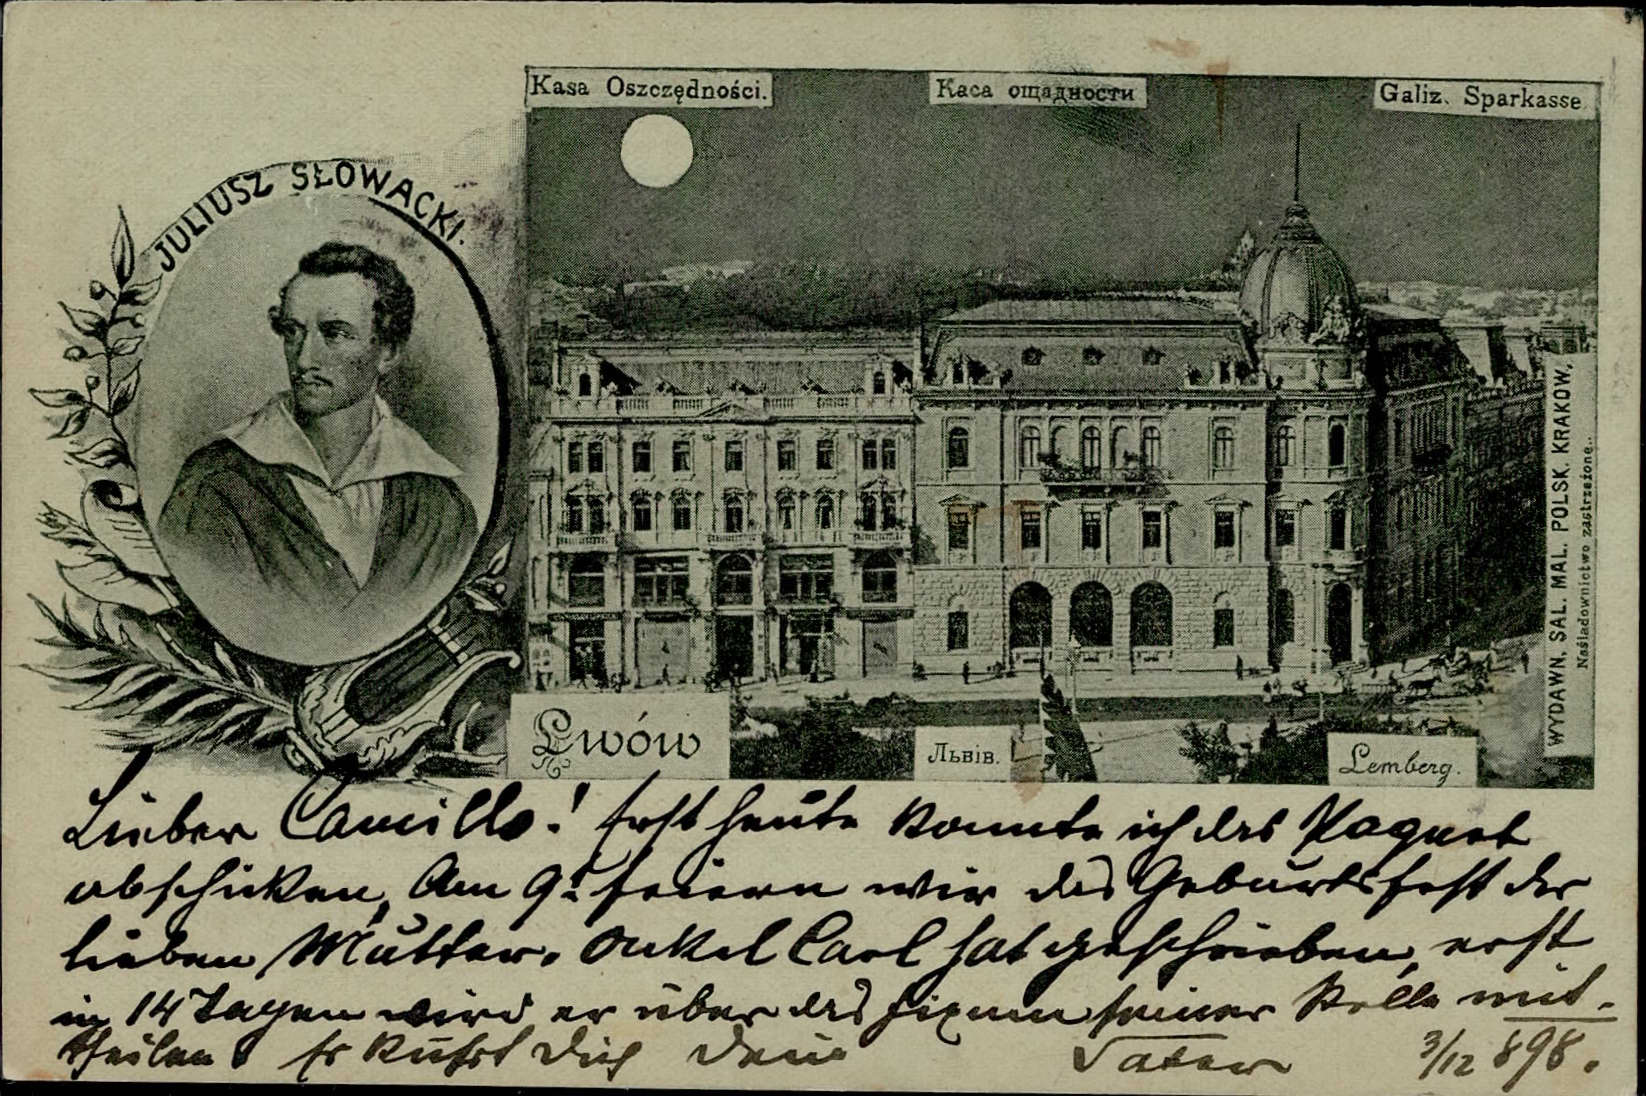 JULIUSZ SŁOWACKI.
Kasa Oszczędności.
Каса ощадности
Galiz. Sparkasse
WYDAWN. SAL. MAL. POLSK. KRAKOW.
Naśladownictwo zastrzeżone.
Lwów
Львів.
Lemberg.
Lieber Camillo! Erst heute konnte ich das Paquet
abschicken, Am 9t feiern wir das Geburtsfest der
lieben Mutter. Onkel Carl hat geschrieben, erst
in 14 Tagen wird er über das fixum seiner Stelle mit-
theilen. Es küsst Dich Dein Vater 3/12 898.